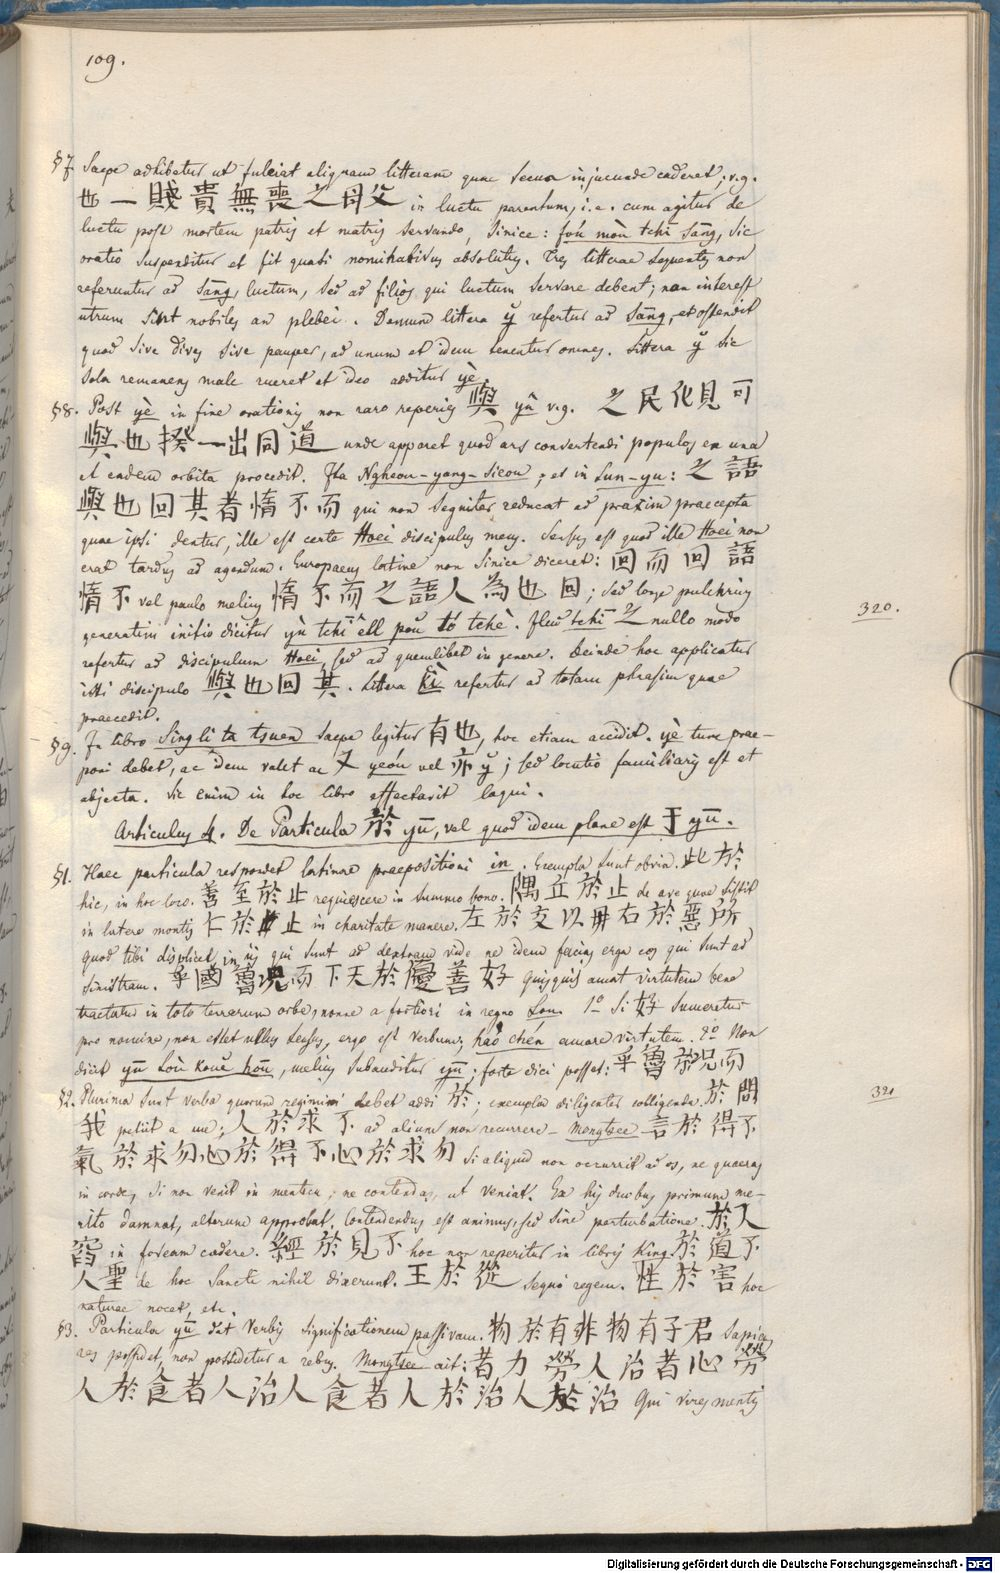 109.
§7. Saepe adhibetur ut fulciat aliquam litteram quae secus injucunde caderet, v.g.
也一賤貴無喪之母父 in luctu parentum, i.e. cum agitur de
luctu post mortem patris et matris servando, Sinice: foú moù tchī sāng, sic
oratio suspenditur et fit quasi nominativus absolutus. Tres litterae sequentes non
referuntur ad sāng, luctum, sed ad filios qui luctum servare debent; non interest
utrum sint nobiles an plebei. Demum littera y̆ refertur ad sāng, et ostendit
quod sive dives sive pauper, ad unum et idem tenentur omnes. Littera y̆ sic
sola remanens male rueret et ideo additur yè.
§8. Post yè in fine orationis non raro reperies 與 yû v.g. 之民化見可
與也揆一出同道 unde apparet quod ars convertendi populos en una
et eadem orbita procedit. Ita Ngheou-yang-sieou; et in Lun-yu: 之語
與也回其者惰不而 qui non segniter reducat ad praxim praecepta
quae ipsi dentur, ille est certe Hoei discipulus meus. Sensus est quod ille Hoei non
erat tardus ad agendum. Europaeus latine non Sinice diceret: 回而回語
惰不 vel paulo melius 惰不而之語人為也回; sed longe pulchrius
generatim initio dicitur yù tchī êll poŭ tó tchè. Heu tchī 之 nullo modo
refertur ad discipulum Hoei, sed ad quemlibet in genere. Deinde hoc applicatur
isti discipulo 與也回其. Littera kî refertur ad totam phrasim quae
praecedit.
§9. In libro Sing li ta tsuen saepe legitur 有也, hoc etiam accidit. yè tunc prae-
poni debet, ac idem valet ac 又 yeóu vel 亦 y̆; sed locutio familiaris est et
abjecta. Sic enim in hoc libro affectavit loqui.
Articulus 4. De Particula 於 yū, vel quod idem plane est 于 yū.
§1. Haec particula respondet latinae praepositioni in. Exempla sunt obvia. 此於
hic, in hoc loco. 善至於止 requiescere in summo bono. 隅丘於止 de ave quae sistit
in latere montis 仁於止 in charitate manere. 左於交以毋右於惡所
quod tibi displicet in iis qui sunt ad dextram vide ne idem facias erga eos qui sunt ad
sinistram. 乎國魯況而下天於優善好 quisquis amat virtutem bene
tractatur in toto terrarum orbe, nonne a fortiori in regno Lou. 1º Si 好 sumeretur
pro nomine, non esset ullus sensus, ergo est verbum, háo chén amare virtutem. 2º Non
dicit yū Loù kouĕ hoū, melius subauditur yū; forte dici posset: 乎魯於況而
§2. Plurima sunt verba quorum regimini debet addi 於; exempla diligenter colligenda. 於問
我 petiit a me; 人於求不 ad alium non recurrere - Mengtsee 言於得不
氣於求勿心於得不心於求勿 Si aliquid non occurrit ad os, ne quaeras
in corde, si non venit in mentem, ne contendas, ut veniat. Ex his duobus primum me-
rito damnat, alterum approbat. Contendendus est animus, sed sine perturbatione. 於入
窞 in foveam cadere. 經於見不 hoc non reperitur in libris King. 於道不
人聖 de hoc Sancti nihil dixerunt. 王於從 sequi regem. 性於害 hoc
naturae nocet, etc.
§3. Particula yū dat Verbis significationem passivam. 物於有非物有子君 Sapiens
res possidet, non possidetur a rebus. Mengtsee ait: 者力勞人治者心勞
人於食者人治人食者人於治人於治 Qui vires mentis
320.
321
Digitalisierung gefördert durch die Deutsche Forschungsgemeinschaft - DFG